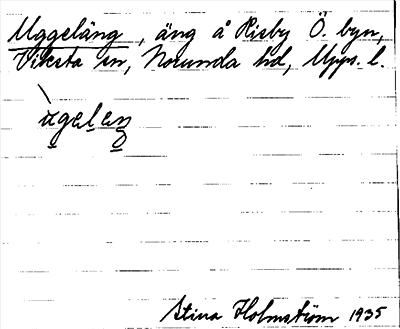 Uggeläng, äng å Risby Ö. byn,
Viksta sn, Norunda hd, Upps. l.
Stina Holmström 1935